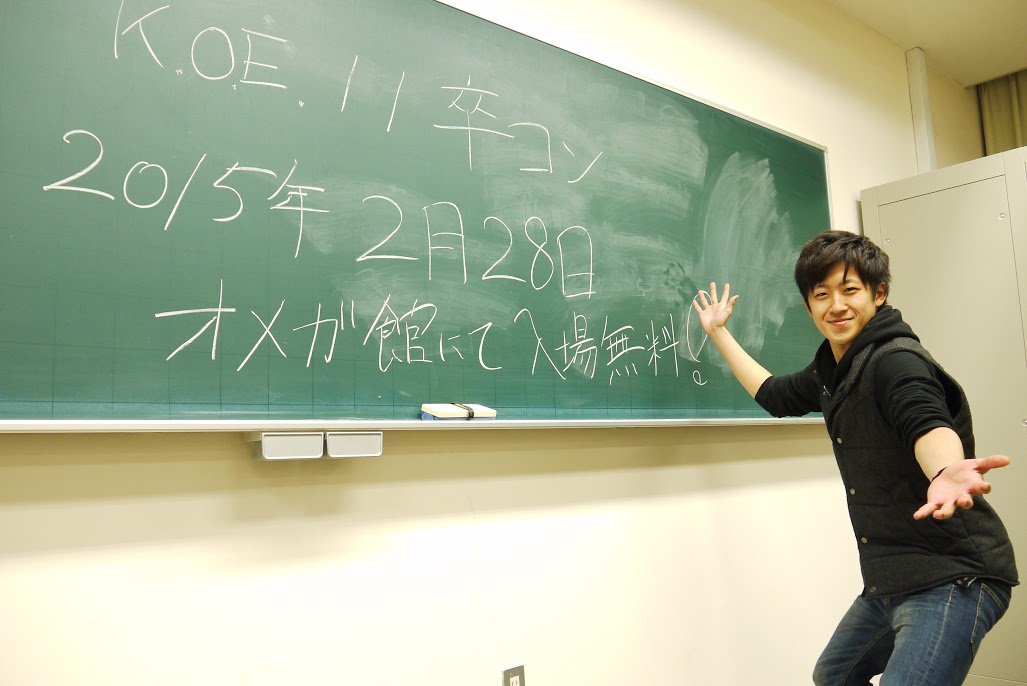 K.O.E. 11 卒コン
2015年 2月28日
オメガ館にて 入場無料!